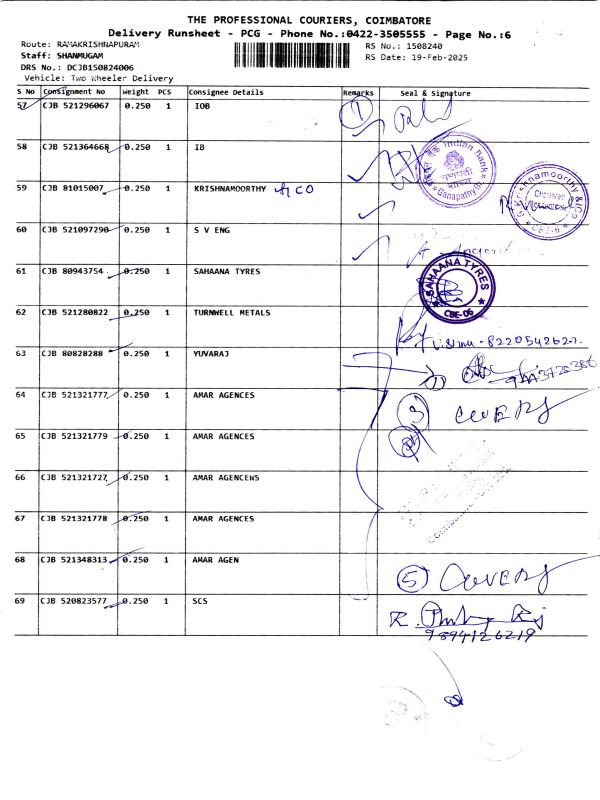 THE PROFESSIONAL COURIERS, COIMBATORE
Delivery Runsheet - PCG - Phone No.:0422-3505555 - Page No.:6
Route: RAMAKRISHNAPURAM
RS No.: 1508240
Staff: SHANMUGAM
RS Date: 19-Feb-2025
DRS No.: DCJB150824006
Vehicle: Two Wheeler Delivery
S No Consignment No Weight PCS Consignee Details Remarks Seal & Signature
57 CJB 521296067 0.250 1 IOB 1
58 CJB 521364668 0.250 1 IB
59 CJB 81015007 0.250 1 KRISHNAMOORTHY & CO
60 CJB 521097290 0.250 1 S V ENG
61 CJB 80943754 0.250 1 SAHAANA TYRES
SAHAANA TYRES
CBE-06
62 CJB 521280822 0.250 1 TURNWELL METALS
Vishnu - 8220542627.
63 CJB 80828288 0.250 1 YUVARAJ
64 CJB 521321777 0.250 1 AMAR AGENCES
65 CJB 521321779 0.250 1 AMAR AGENCES
66 CJB 521321727 0.250 1 AMAR AGENCEWS
67 CJB 521321778 0.250 1 AMAR AGENCES
68 CJB 521348313 0.250 1 AMAR AGEN
5 COVERS
69 CJB 520823577 0.250 1 SCS
9894126219